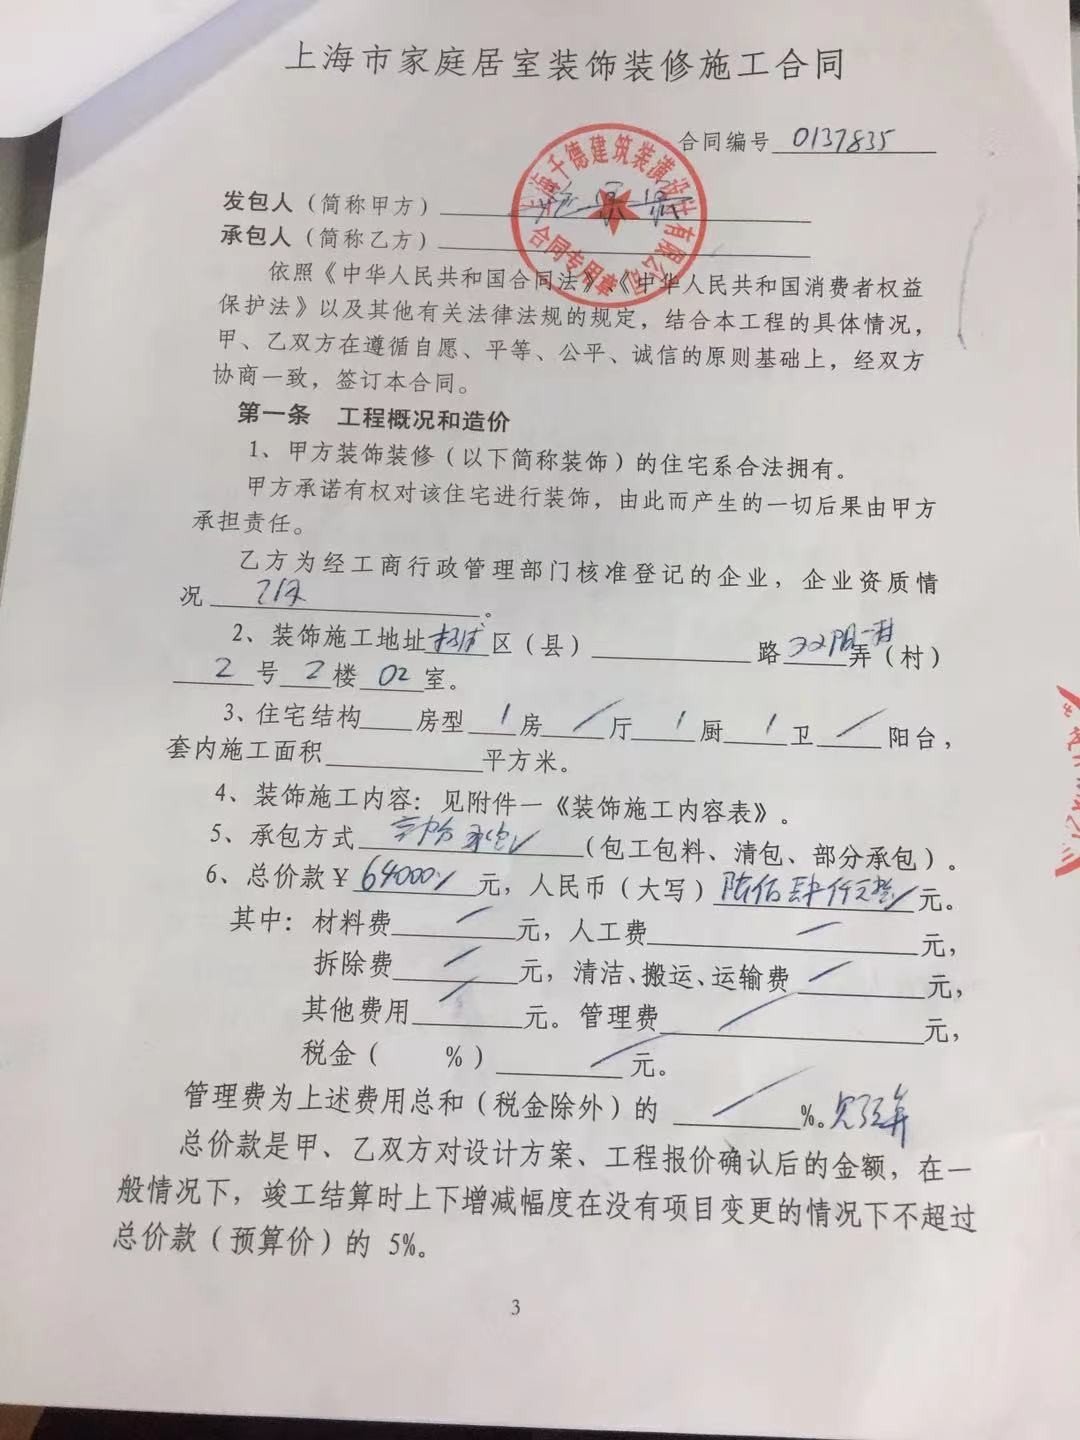 上海市家庭居室装饰装修施工合同
合同编号 0137835
上海千德建筑装潢设计有限公司
合同专用章
发包人（简称甲方）
承包人（简称乙方）
依照《中华人民共和国合同法》、《中华人民共和国消费者权益
保护法》以及其他有关法律法规的规定，结合本工程的具体情况，
甲、乙双方在遵循自愿、平等、公平、诚信的原则基础上，经双方
协商一致，签订本合同。
第一条 工程概况和造价
1、甲方装饰装修（以下简称装饰）的住宅系合法拥有。
甲方承诺有权对该住宅进行装饰，由此而产生的一切后果由甲方
承担责任。
乙方为经工商行政管理部门核准登记的企业，企业资质情
况 。
2、装饰施工地址杨浦区（县） 路双阳一村弄（村）
2 号 2 楼 02 室。
3、住宅结构 房型 1 房 / 厅 1 厨 1 卫 / 阳台，
套内施工面积 平方米。
4、装饰施工内容：见附件一《装饰施工内容表》。
5、承包方式 部分承包 （包工包料、清包、部分承包）。
6、总价款￥ 64000 元，人民币（大写） 陆佰肆仟元整 元。
其中：材料费 / 元，人工费 / 元，
拆除费 / 元，清洁、搬运、运输费 / 元，
其他费用 / 元。管理费 / 元，
税金（ %） / 元。
管理费为上述费用总和（税金除外）的 / %。见预算
总价款是甲、乙双方对设计方案、工程报价确认后的金额，在一
般情况下，竣工结算时上下增减幅度在没有项目变更的情况下不超过
总价款（预算价）的 5%。
3